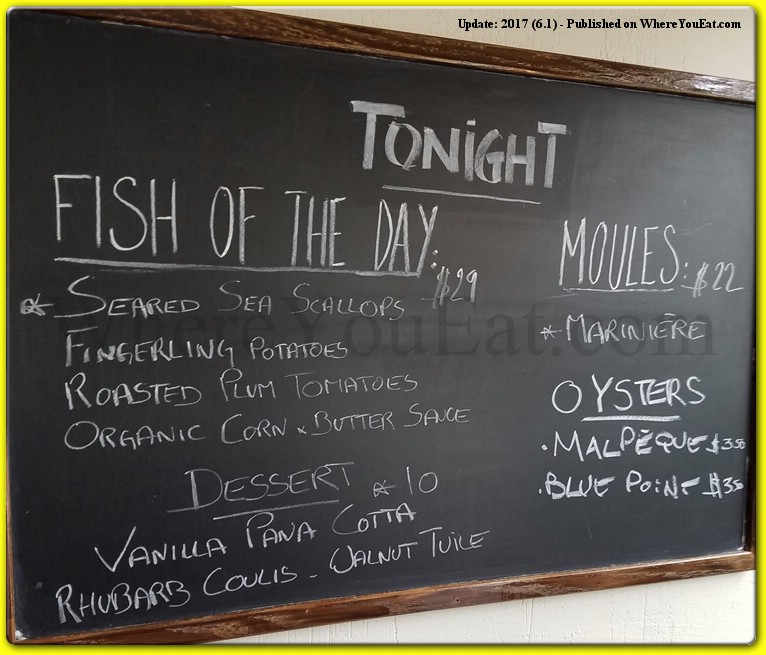 Update: 2017 (6.1) - Published on WhereYouEat.com
TONIGHT
FISH OF THE DAY: $29
* SEARED SEA SCALLOPS
FINGERLING POTATOES
ROASTED PLUM TOMATOES
ORGANIC CORN x BUTTER SAUCE
DESSERT * 10
VANILLA PANA COTTA
RHUBARB COULIS - WALNUT TUILE
MOULES: $22
* MARINIÈRE
OYSTERS
· MALPÈQUE $350
· BLUE POINT $350
WhereYouEat.com